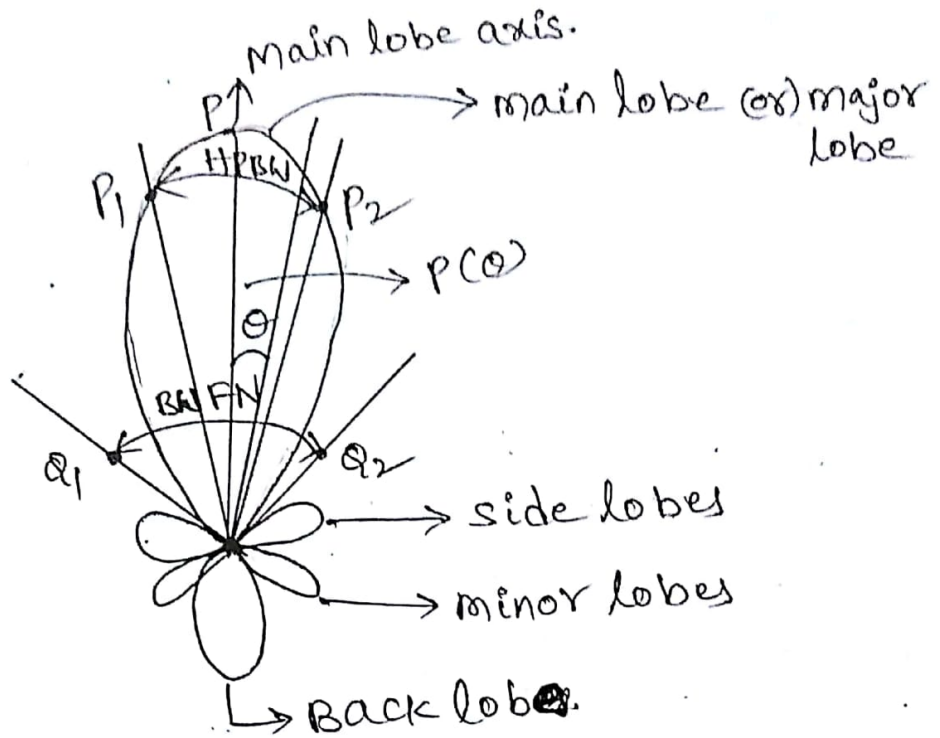 Main lobe axis.
P
main lobe (or) major
lobe
HPBW
P1
P2
P(θ)
θ
BWFN
Q1
Q2
side lobes
minor lobes
Back lobe.